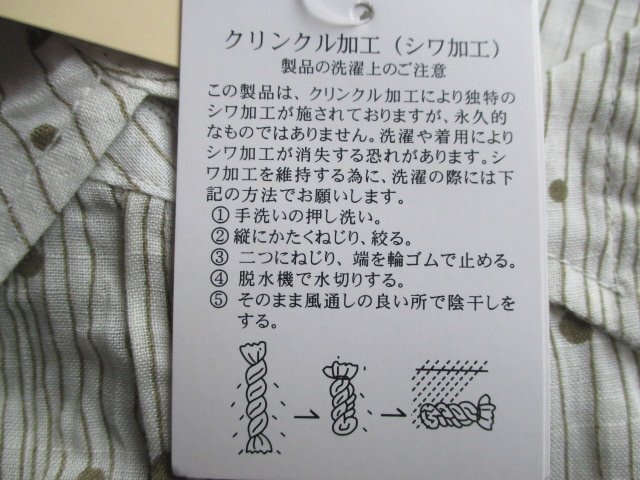 クリンクル加工（シワ加工）
製品の洗濯上のご注意
この製品は、クリンクル加工により独特の
シワ加工が施されておりますが、永久的
なものではありません。洗濯や着用により
シワ加工が消失する恐れがあります。シ
ワ加工を維持する為に、洗濯の際には下
記の方法でお願いします。
①手洗いの押し洗い。
②縦にかたくねじり、絞る。
③ 二つにねじり、端を輪ゴムで止める。
④ 脱水機で水切りする。
⑤ そのまま風通しの良い所で陰干しを
する。